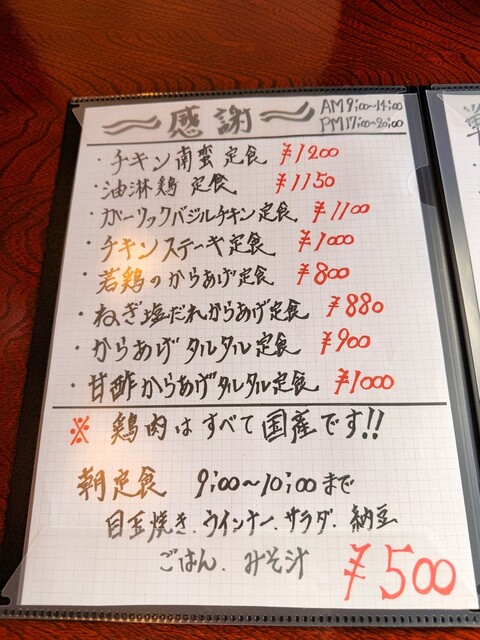 〜感謝〜
AM9:00~14:00
PM17:00~20:00
・チキン南蛮定食 ¥1200
・油淋鶏 定食 ¥1150
・ガーリックバジルチキン定食 ¥1100
・チキンステーキ定食 ¥1000
・若鶏のからあげ定食 ¥800
・ねぎ塩だれからあげ定食 ¥880
・からあげタルタル定食 ¥900
・甘酢からあげタルタル定食 ¥1000
※ 鶏肉はすべて国産です!!
朝定食 9:00~10:00まで
目玉焼き.ウインナー.サラダ.納豆
ごはん.みそ汁 ¥500